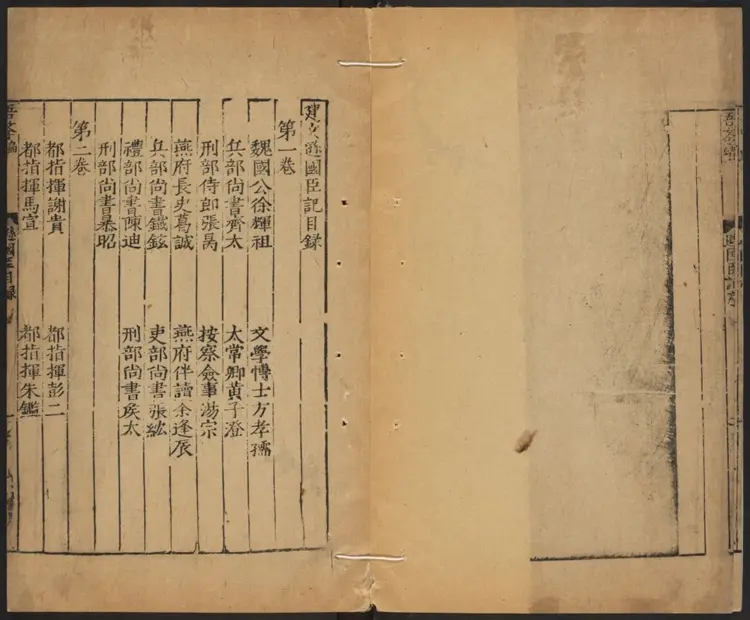 建文遜國臣記目錄
第一卷
魏國公徐輝祖 文學博士方孝孺
兵部尚書齊太 太常卿黃子澄
刑部侍郎張昺 按察僉事湯宗
燕府長史葛誠 燕府伴讀余逢辰
兵部尚書鐵鉉 吏部尚書張紞
禮部尚書陳迪 刑部尚書侯太
刑部尚書暴昭
第二卷
都指揮謝貴 都指揮彭二
都指揮馬宣 都指揮朱鑑
吾學編 遜國臣目錄